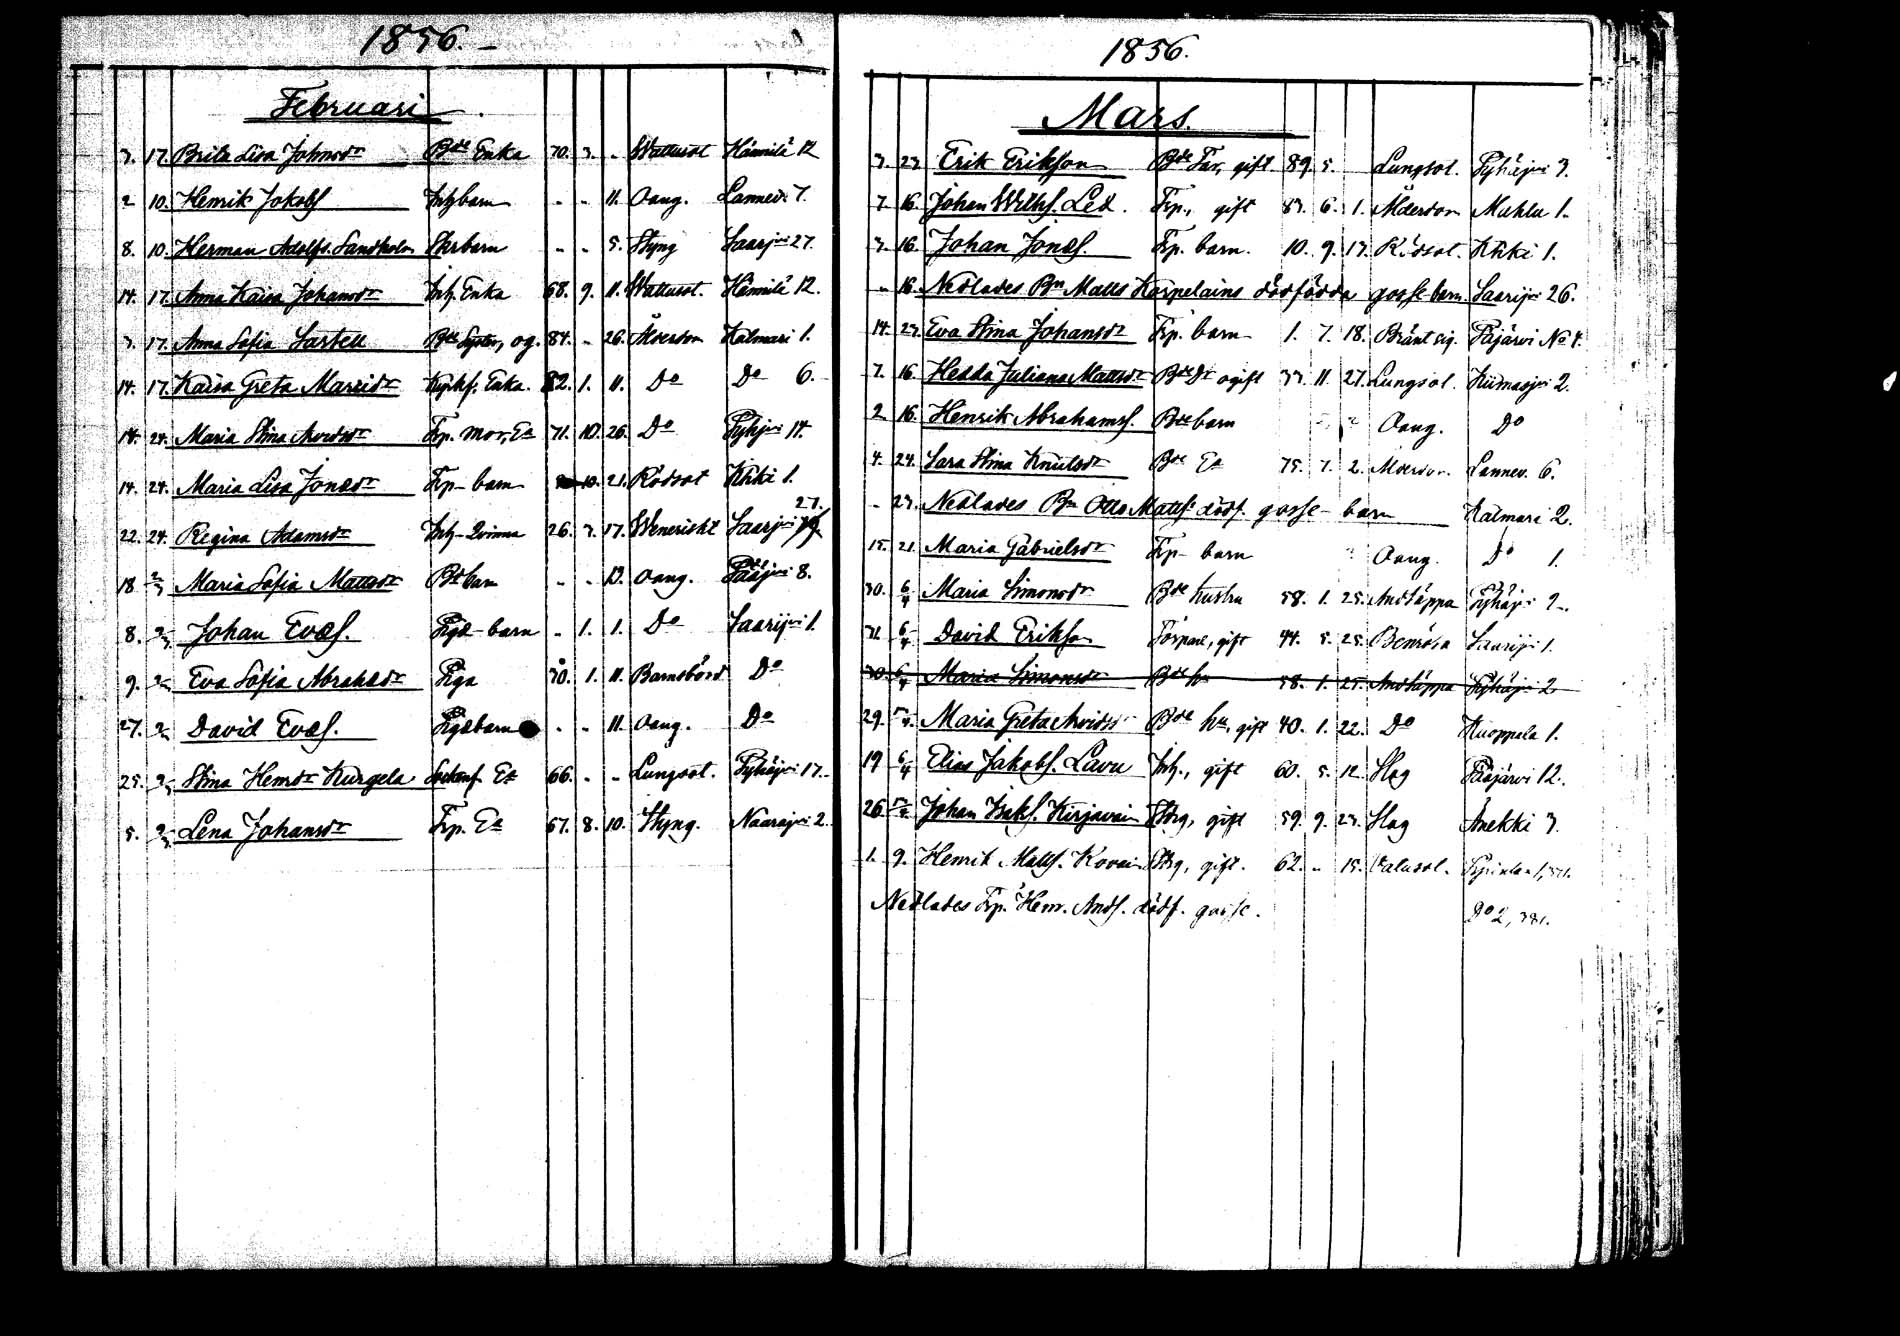 1856.
Februari
3. 17. Brita Lisa Johnsdr Bde Enka 70. 3. - Wattusot Hännilä 12
2 10. Henrik Jakobs. Inhbarn - - 11. Oang. Lannevi 7.
8. 10. Herman Adolfs. Sandholm Skrbarn - - 5. Styng Saarjvi 27.
14. 17. Anna Kaisa Johansdr Inh. Enka 68. 9. 11. Wattusot. Hännilä 12.
3. 17. Anna Sofia Sartell Bde Syster, og. 84. - 26. Ålderdom Kalmari 1.
14. 17. Kaisa Greta Mattsdr Enka. 82. 1. 11. Do Do 6.
14. 24. Maria Stina Arvidsdr Trp. mor, Ea 71. 10. 26. Do Pyhjvi 14.
14. 24. Maria Lisa Jonasdr Trp-barn 10. 21. Rödsot Kūki 1.
22. 24. Regina Adamsdr Inh-Qvinna 26. 3. 17. Weneriskt Saarjvi 27.
18 2/3 Maria Sofia Mattsdr Bdebarn - - 13. Oang. Pääjvi 8.
8. 2/3 Johan Evas. Pigæ-barn - 1. 1. Do Saarijvi 1.
9. 2/3 Eva Sofia Abrahsdr Piga 30. 1. 11. Barnsbörd Do
27. 2/3 David Evas. Pigæbarn - - 11. Oang. Do
25. 2/3 Stina Henrsdr Kurgela Ea 66. - - Lungsot. Pyhäjvi 17.
5. 2/3 Lena Johansdr Trp. Ea 67. 8. 10. Styng. Naarajvi 2.
1856.
Mars.
3. 23 Erik Erikson Bde Far, gift 89. 5. Lungsot. Pyhäjvi 3.
7. 16. Johan Wilhs. Led. Trp., gift 83. 6. 1. Ålderdom Mahlu 1.
3. 16. Johan Jonas. Trp. barn. 10. 9. 13. Rödsot. Kūki 1.
- 16. Nedlades Bn Matts Karpelains dödfödda gosse-barn. Saarijvi 26.
14. 23. Eva Stina Johansdr Trp. barn 1. 7. 18. Bränt sig. Pääjärvi No 4.
7. 16. Hedda Juliana Mattsdr Bde Dr ogift 33. 11. 27. Lungsot. Kiimasjvi 2.
2 16. Henrik Abrahams. Bdebarn Oang. Do
4. 24. Sara Stina Knutsdr Bde Ea 75. 7. 2. Ålderdom. Lannev. 6.
- 23. Nedlades Bn Otto Matts. dödf. gosse-barn Kalmari 2.
15. 21. Maria Gabrielsdr Trp-barn Oang. Do 1.
30. 6/4 Maria Simonsdr Bde hustru 58. 1. 25. Andtäppa Pyhäjvi 2.
31 6/4 David Erikson Torpare, gift 44. 5. 25. Benröta Saarijvi 1.
30. 6/4 Maria Simonsdr Bde hu 58. 1. 25. Andtäppa Pyhäjvi 2
29. Maria Greta Arvidsdr Bde hu, gift 40. 1. 22. Do Kuoppala 1.
19 6/4 Elias Jakobs. Lavu Inh., gift 60. 5. 12. Håg Pääjärvi 12.
26. Johan Isaks. Kirjavain gift 59. 9. 23. Håg Änekki 3.
1. 9. Henrik Matts. Kovain gift. 62. - 15.
Nedlades Trp. Henr. Ands. dödf. gosse. Do 2, 381.